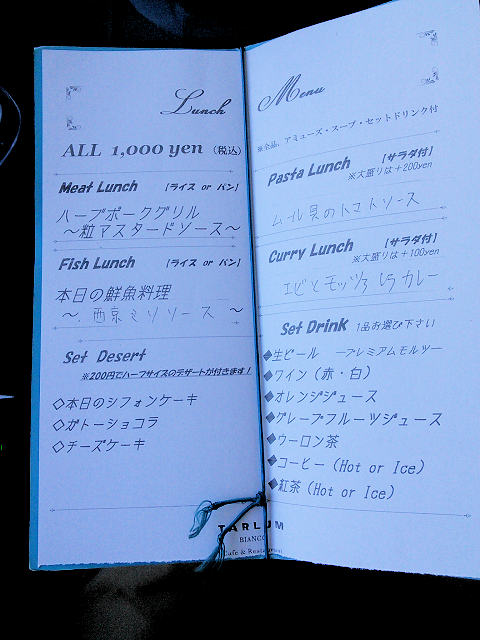 Lunch
ALL 1,000 yen (税込)
Meat Lunch 【ライス or パン】
ハーブポークグリル
～粒マスタードソース～
Fish Lunch 【ライス or パン】
本日の鮮魚料理
～西京ミソソース ～
Set Desert
※200円でハーフサイズのデザートが付きます！
◇本日のシフォンケーキ
◇ガトーショコラ
◇チーズケーキ
Menu
※全品、アミューズ・スープ・セットドリンク付
Pasta Lunch 【サラダ付】
※大盛りは＋200yen
ムール貝のトマトソース
Curry Lunch 【サラダ付】
※大盛りは＋100yen
エビとモッツァレラカレー
Set Drink 1品お選び下さい
◆生ビール ープレミアムモルツー
◆ワイン（赤・白）
◆オレンジジュース
◆グレープフルーツジュース
◆ウーロン茶
◆コーヒー（Hot or Ice）
◆紅茶（Hot or Ice）
TARLUM
BIANCO
Cafe & Restaurant